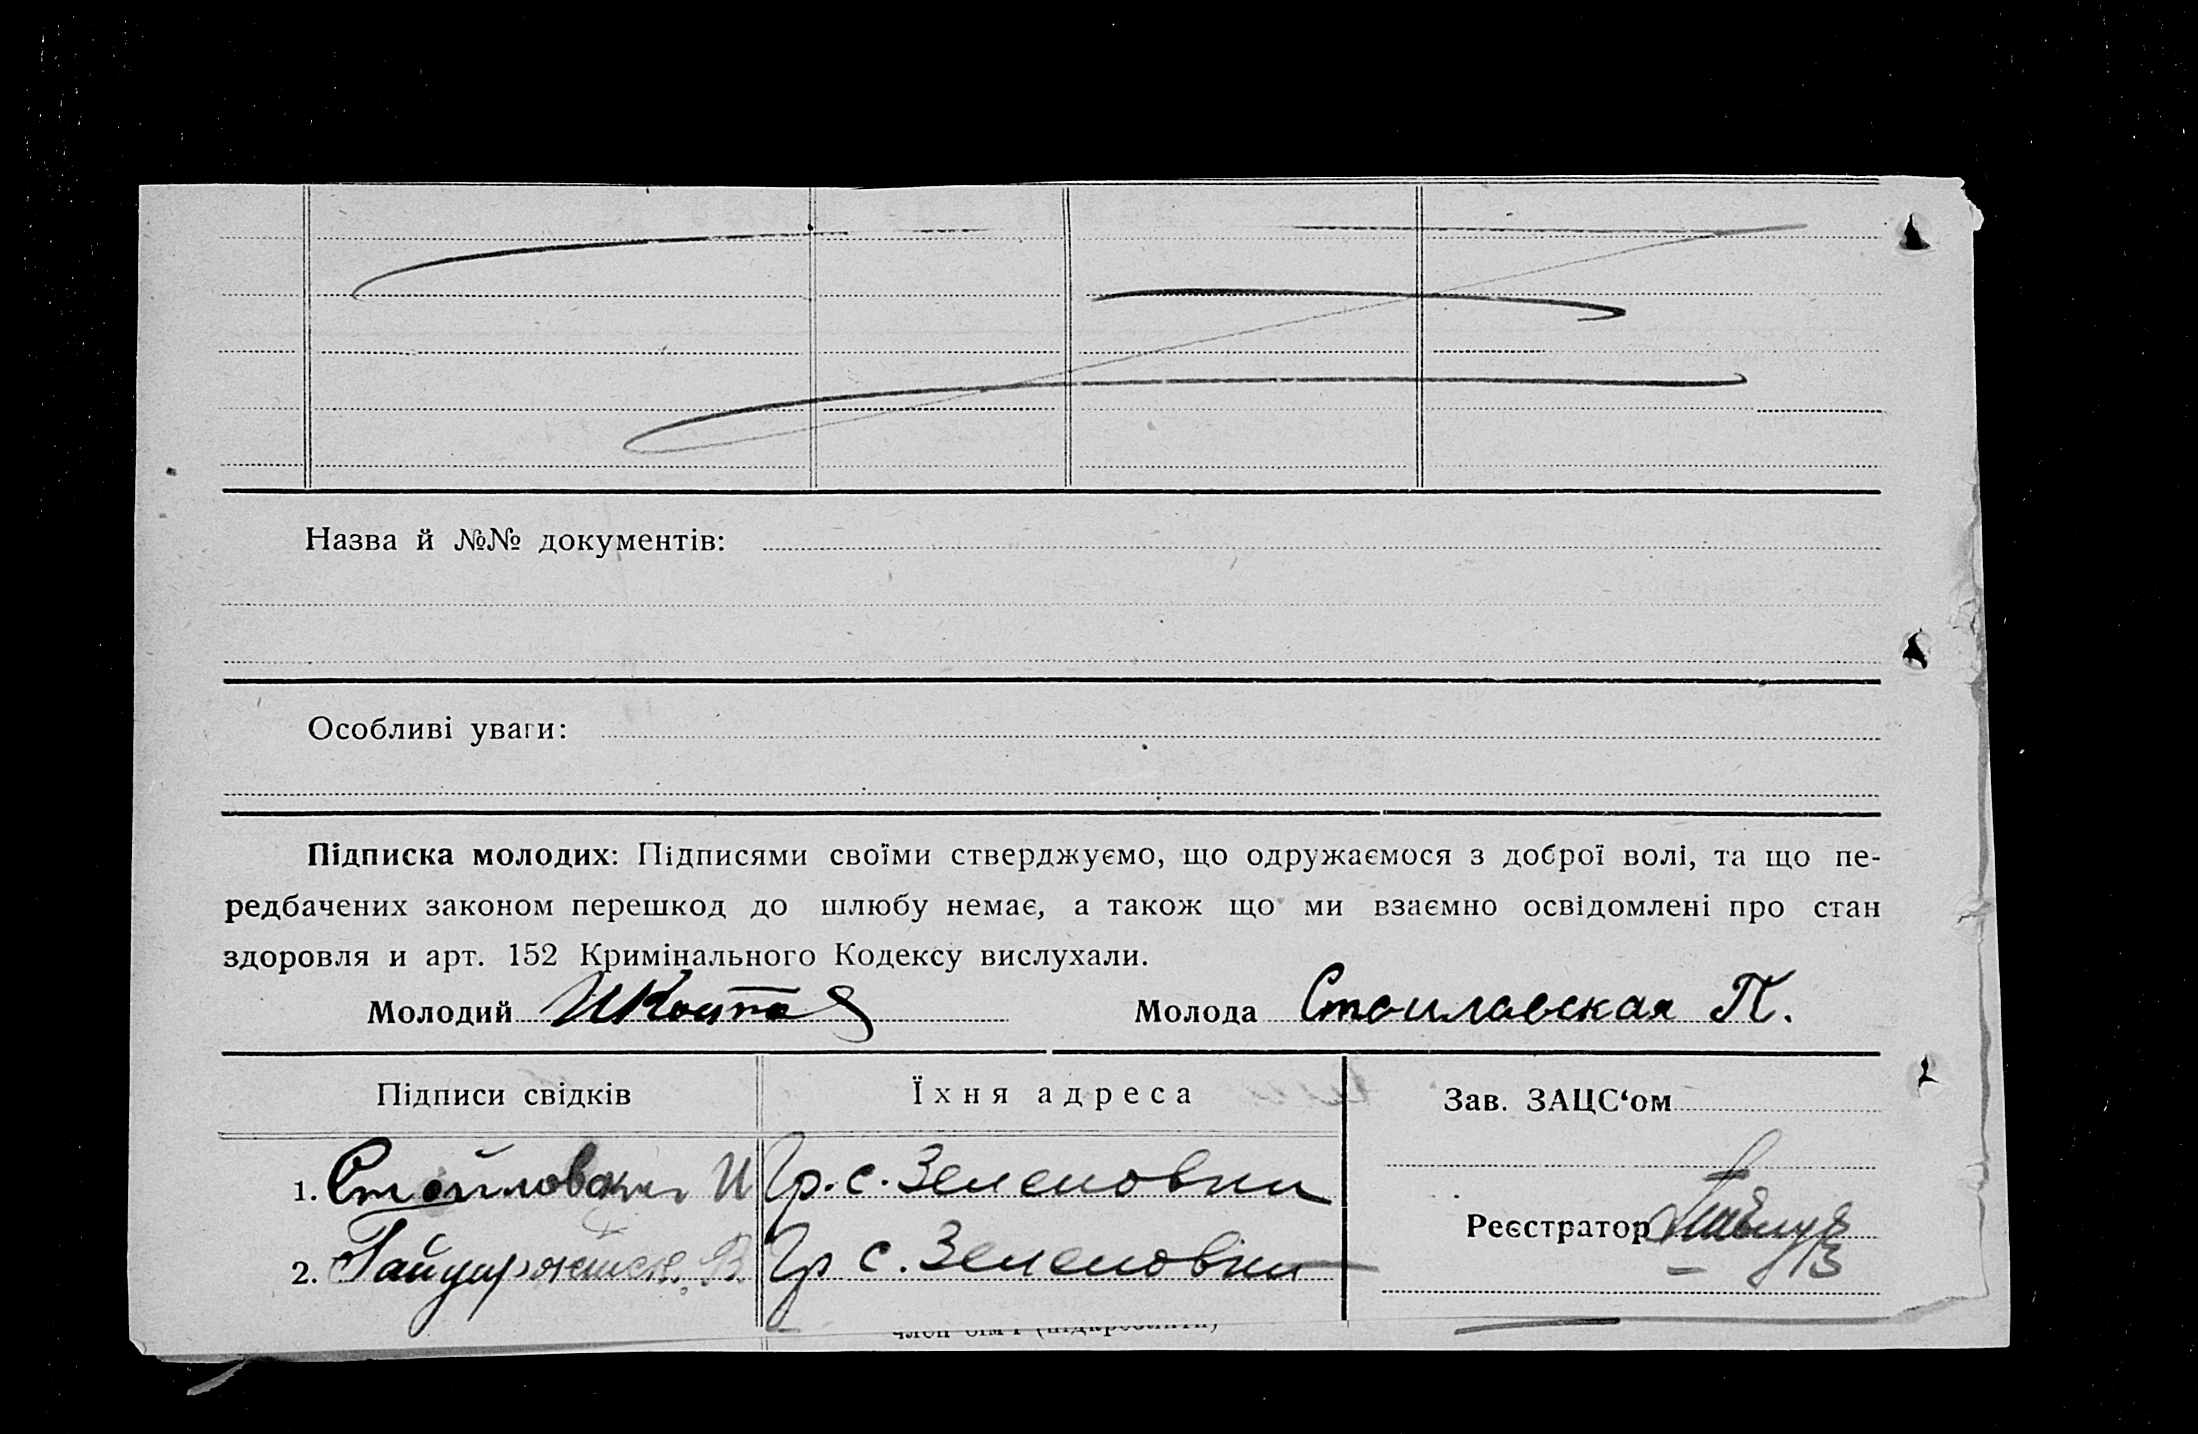 Назва й №№ документів:
Особливі уваги:
Підписка молодих: Підписями своїми стверджуємо, що одружаємося з доброї волі, та що пе-
редбачених законом перешкод до шлюбу немає, а також що ми взаємно освідомлені про стан
здоровля и арт. 152 Кримінального Кодексу вислухали.
Молодий Молода Стоиловская П.
Підписи свідків Їхня адреса Зав. ЗАЦС‘ом
1. И Гр. с. Зеленовки
Реєстратор
2. В. Гр с. Зеленовки